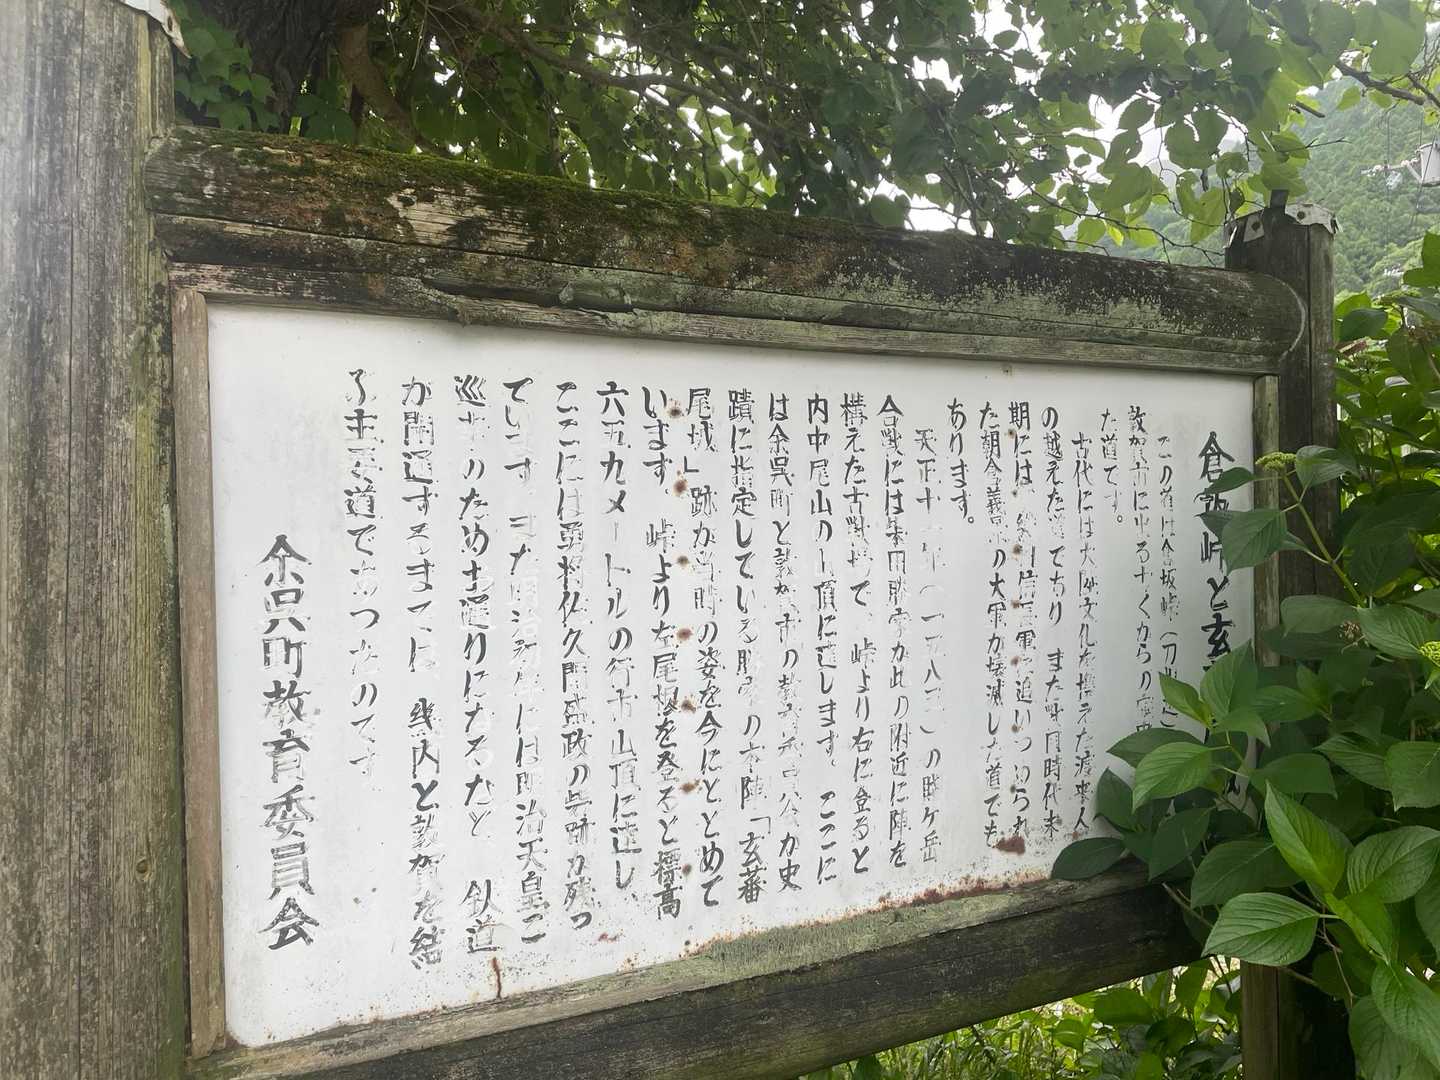 倉坂峠と玄
この道は倉坂峠（刀
敦賀市に出る古くからの
た道です。
古代には大陸文化を携えた渡来人
の越えた道であり また戦国時代末
期には 織田信長軍に追いつめられ
た朝倉義景の大軍が壊滅した道でも
あります。
天正十一年（一五八三）の賤ケ岳
合戦には柴田勝家が此の附近に陣を
構えた古戦場で 峠より右に登ると
内中尾山の山頂に達します。ここに
は余呉町と敦賀市の教育委員会が史
蹟に指定している勝家の本陣「玄蕃
尾城」跡が当時の姿を今にとどめて
います。峠より左尾根を登ると標高
六五九メートルの行市山頂に達し
ここには勇将佐久間盛政の砦跡が残っ
ています。また明治初年には明治天皇ご
巡幸のため大通りになるなど 鉄道
が開通するまでは 畿内と敦賀を結
ぶ主要道であったのです
余呉町教育委員会